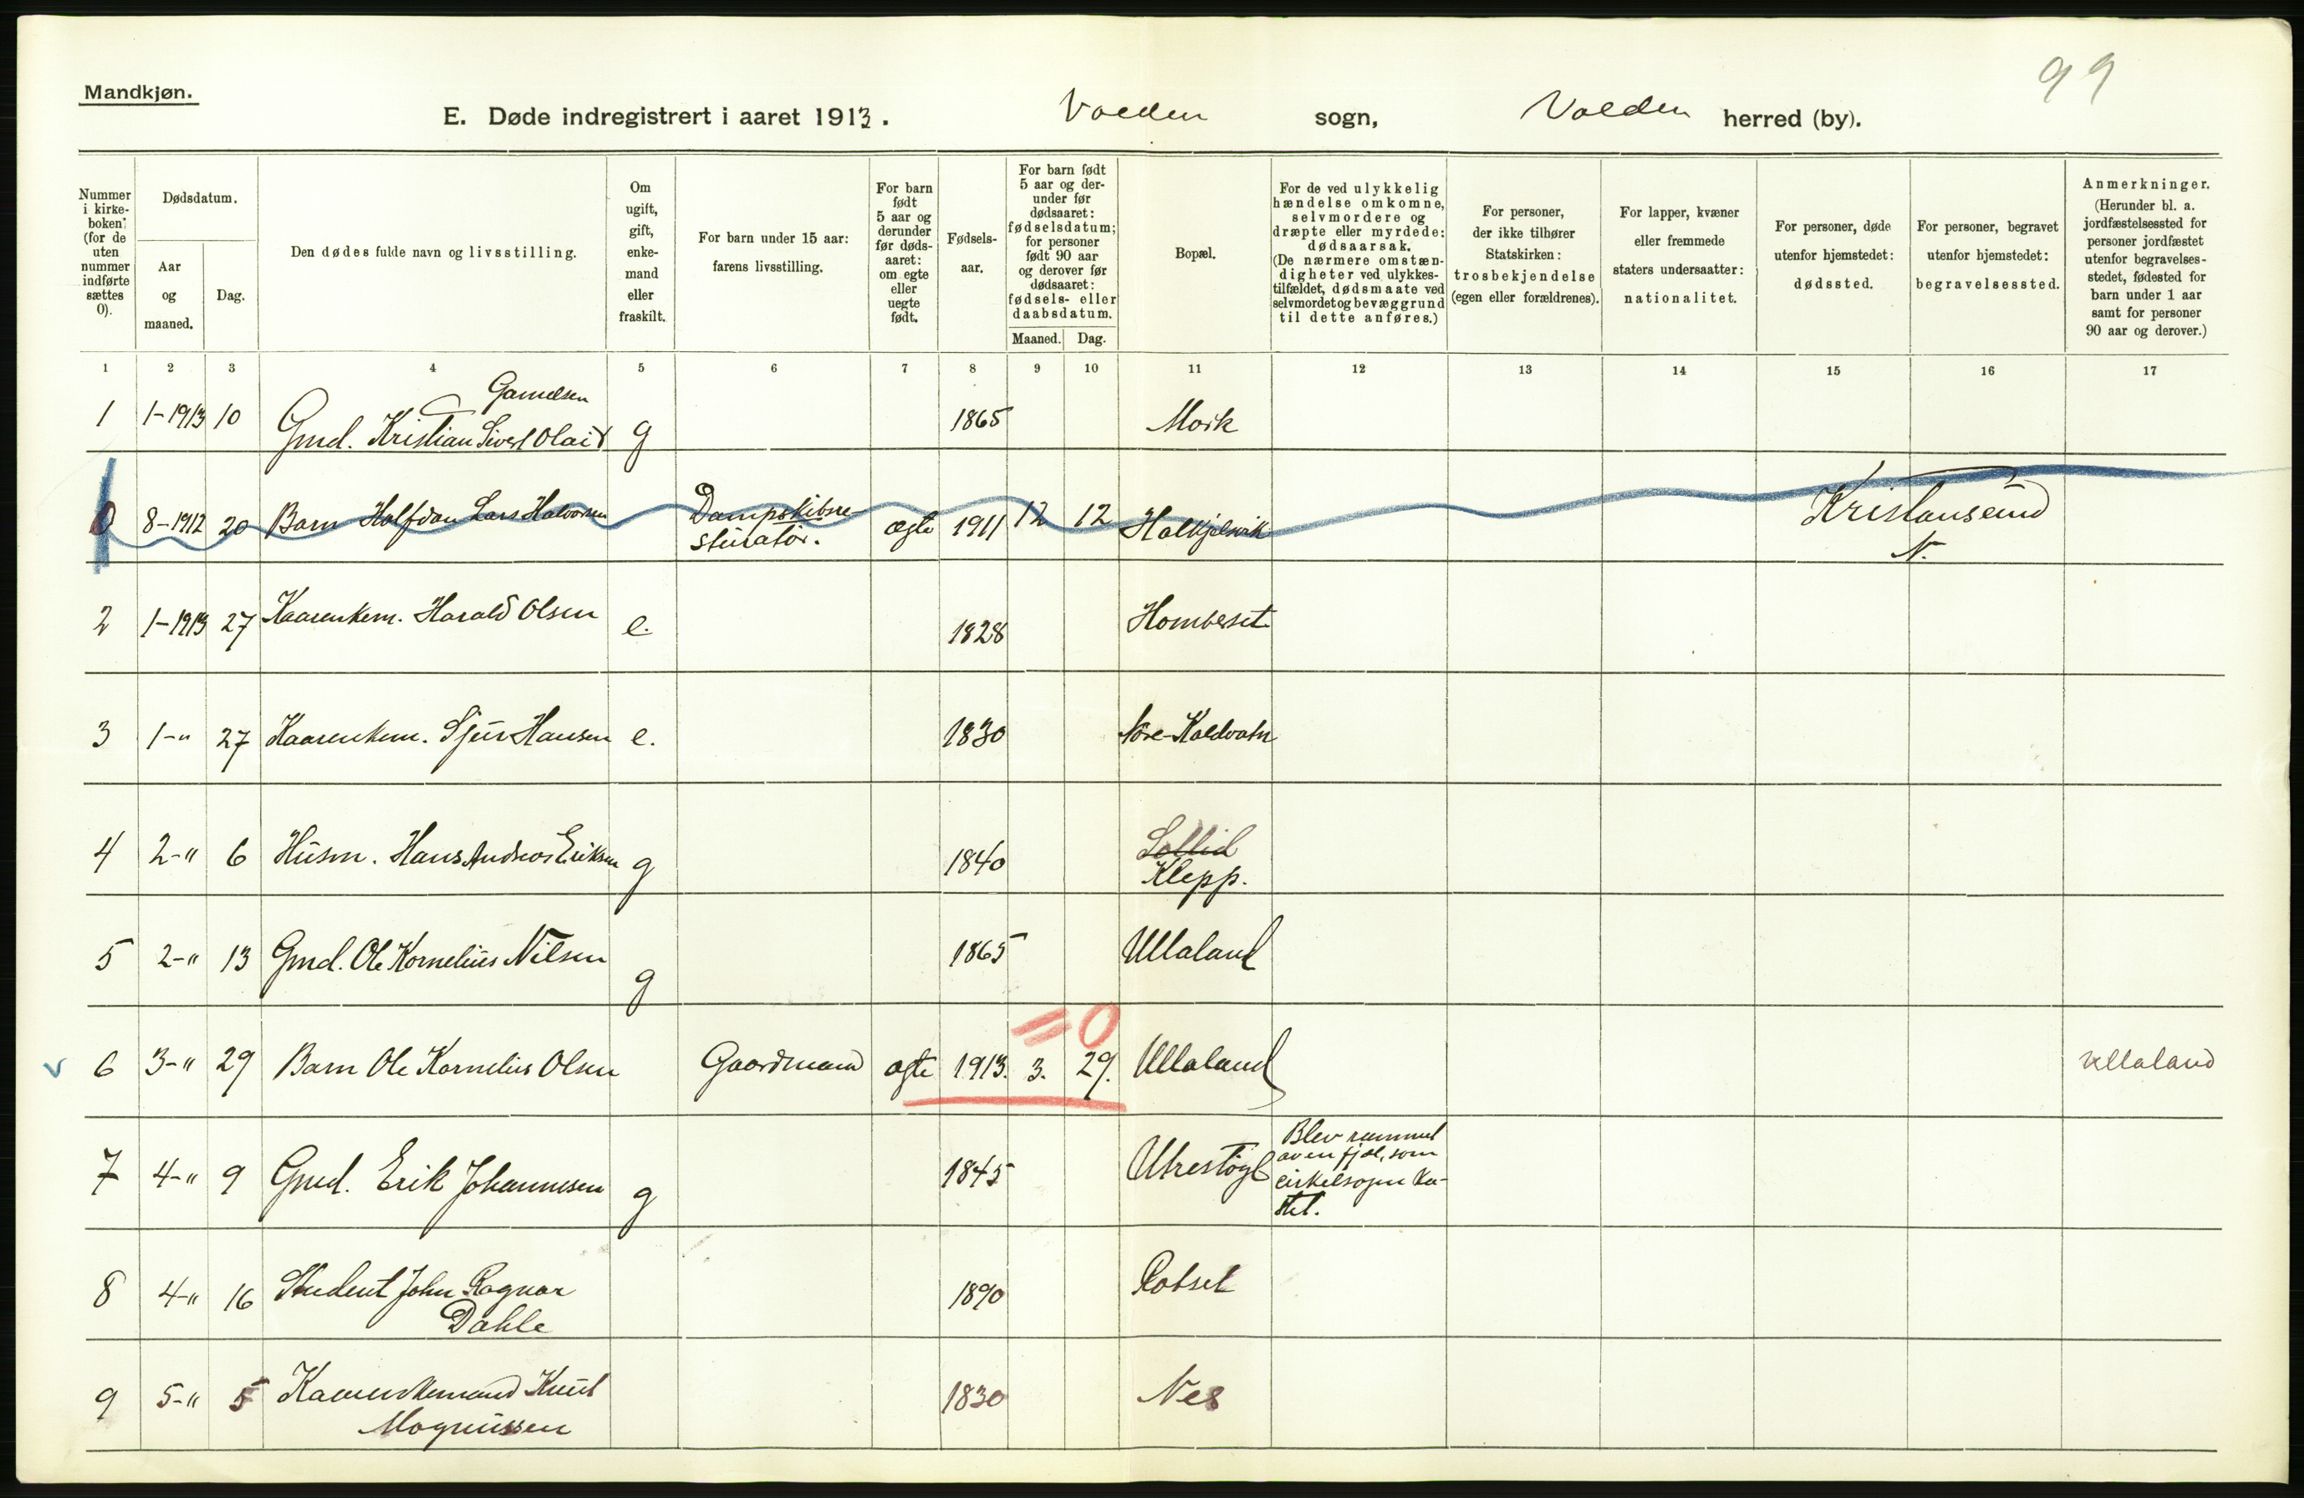 99
Mandkjøn.
E. Døde indregistrert i aaret 1913. Volden sogn, Volden herred (by).
Nummer i kirkeboken: (for de uten nummer indførte sættes 0).
Dødsdatum.
Aar og maaned.
Dag.
Den dødes fulde navn og livsstilling.
Om ugift, gift, enkemand eller fraskilt.
For barn under 15 aar: farens livsstilling.
For barn født 5 aar og derunder før dødsaaret: om egte eller uegte født.
Fødselsaar.
For barn født 5 aar og derunder før dødsaaret: fødselsdatum; for personer født 90 aar og derover før dødsaaret: fødsels- eller daabsdatum.
Maaned.
Dag.
Bopæl.
For de ved ulykkelig hændelse omkomne, selvmordere og dræpte eller myrdede: dødsaarsak. (De nærmere omstændigheter ved ulykkestilfældet, dødsmaate ved selvmordet og bevæggrund til dette anføres.)
For personer, der ikke tilhører Statskirken: trosbekjendelse (egen eller forældrenes).
For lapper, kvæner eller fremmede staters undersaatter: nationalitet.
For personer, døde utenfor hjemstedet: dødssted.
For personer, begravet utenfor hjemstedet: begravelsessted.
Anmerkninger. (Herunder bl. a. jordfæstelsessted for personer jordfæstet utenfor begravelsesstedet, fødested for barn under 1 aar samt for personer 90 aar og derover.)
1 2 3 4 5 6 7 8 9 10 11 12 13 14 15 16 17
Gamelsen
1 1-1913 10 Gmd. Kristian Sivert Olai g 1865 Mork
0 8-1912 20 Barn Halfdan Lars Halvorsen Dampskibsrestüratör. ægte 1911 12 12 Halkjelsvik Kristiansund N.
2 1-1913 27 Kaarenkem. Harald Olsen e. 1828 Homberset
3 1-" 27 Kaarenkem. Sjur Hansen e. 1830 Nore-Kaldvatn
4 2-" 6 Hüsm. Hans Andreas Eriksen g 1840 Sollid
Klepp.
5 2-" 13 Gmd. Ole Kornelius Nilsen g 1865 Ullaland
=0
v 6 3-" 29 Barn Ole Kornelius Olsen Gaardmand ægte 1913. 3. 29. Ullaland Ullaland
7 4-" 9 Gmd. Erik Johannesen g 1845 Utrestøyl Blev rammet
av en fjøl, som
cirkelsagen kastet.
8 4-" 16 Student John Ragnar
Dahle 1890 Rotset
9 5-" 5 Kaarenkemand Knut
Magnüssen 1830 Nes